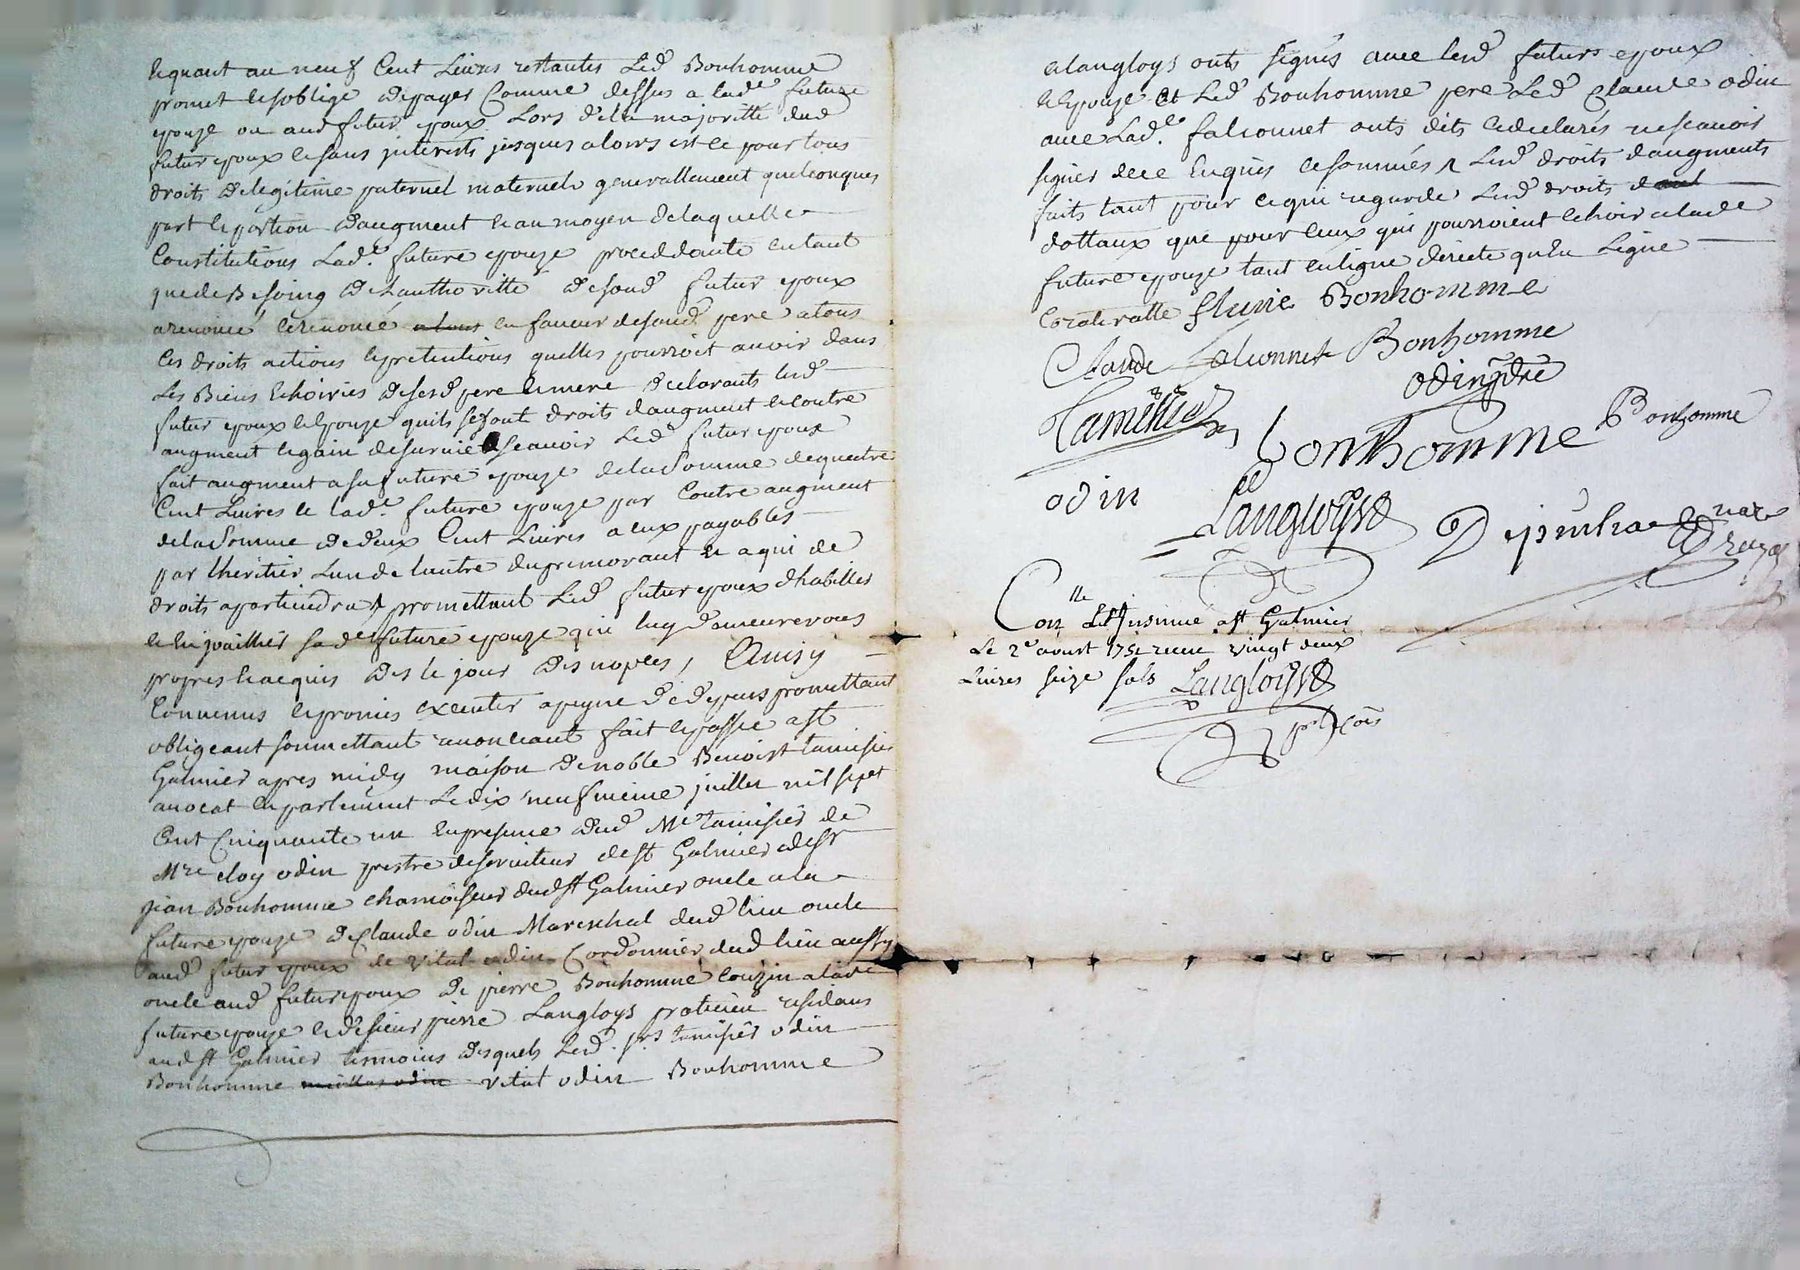 Equant au neuf Cent Livres restantes Led Bonhomme
promet et soblige depayer Comme dessus a lade future
epouze ou aud futur epoux Lors dela majoritté dud
futur epoux et sans jnterests jusques alors est ce pour tous
droits delegitime paternel maternels generallement quelconques
part et portion daugment et au moyen delaquelle
Constitutions Lade future epouze proceddante entant
que de Besoing de Lauthoritté desond futur epoux
arenoncé et renonce en faveur desond pere atous
Les droits actions et pretentions quelles pourroit auoir dans
Les Biens et hoiries desesd pere et mere declarants lesd
futur epoux et epouze quils se font droits daugment et contre
augment et gain desurvie scauoir Led futur epoux
fait augment a sa future epouze de la Somme dequatre
Cent Livres et lade future epouze par Contre augment
dela Somme de deux Cent Livres a eux payables
par lheritier Lun de lautre du premourant et a qui de
droits apartiendra promettant Led futur epoux dhabiller
et enjoailler sade future epouze qui luy demeureront
propres et acquis des le jour des nopces, Ainsy
Convenus et promis executer apeyne de depens promettant
obligeant soumettant renonceant fait et passé a St
Galmier apres midy maison de noble Benoist tamisier
avocat en parlement Le dix neufvieme juillet mil sept
Cent Cinquante un En presence dud Me tamisier de
Mre eloy odin prestre deserviteur de St Galmier de Sr
jean Bonhomme chamoiseur dud St Galmier oncle a la
future epouze de Claude odin Mareschal dud lieu oncle
aud futur epoux de vital odin Cordonnier dud lieu aussy
oncle aud futur epoux de pierre Bonhomme couzin a lade
future epouze et de sieur pierre Langloys praticien residans
aud St Galmier tesmoins desquels Led. srs tamisier odin
Bonhomme vital odin Bonhomme
et langloys onts signés avec lesd futurs epoux
et Epouze et Led Bonhomme pere Led Claude odin
avec Lade falconnet onts dits et declarés ne scavoir
signer de ce Enquis et sommés Lesd droits daugments
faits tant pour ce qui regarde Lesd droits
dottaux que pour ceux qui pourroient echoir a lade
future epouze tant en ligne directe qu'en Ligne
Coralteralle fleurie Bonhomme
Claude falconnet Bonhomme
odin ptre
Tamisier
bonhomme Bonhomme
odin
Langloys
Con lle Et Insinué a St Galmier
Le 2e aoust 1751 receu vingt deux
Livres seize sols Langloys